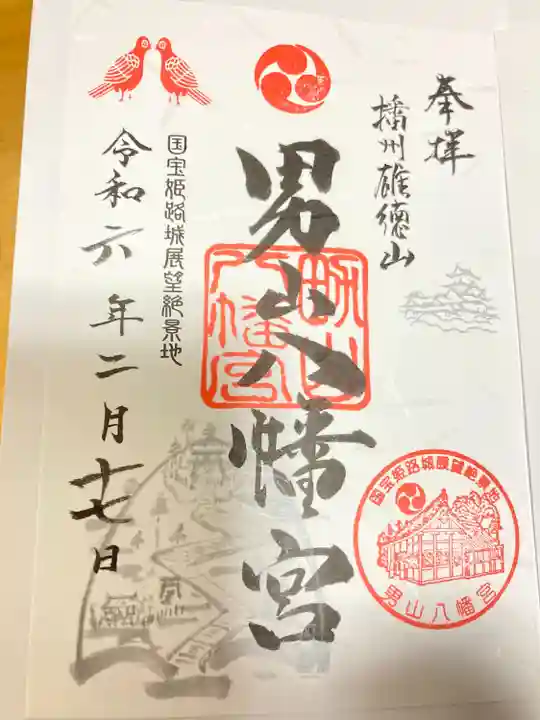 奉拝
播州雄徳山
男山八幡宮
男山
八幡宮
国宝姫路城展望絶景地
令和六年二月十七日
国宝姫路城展望絶景地
男山八幡宮